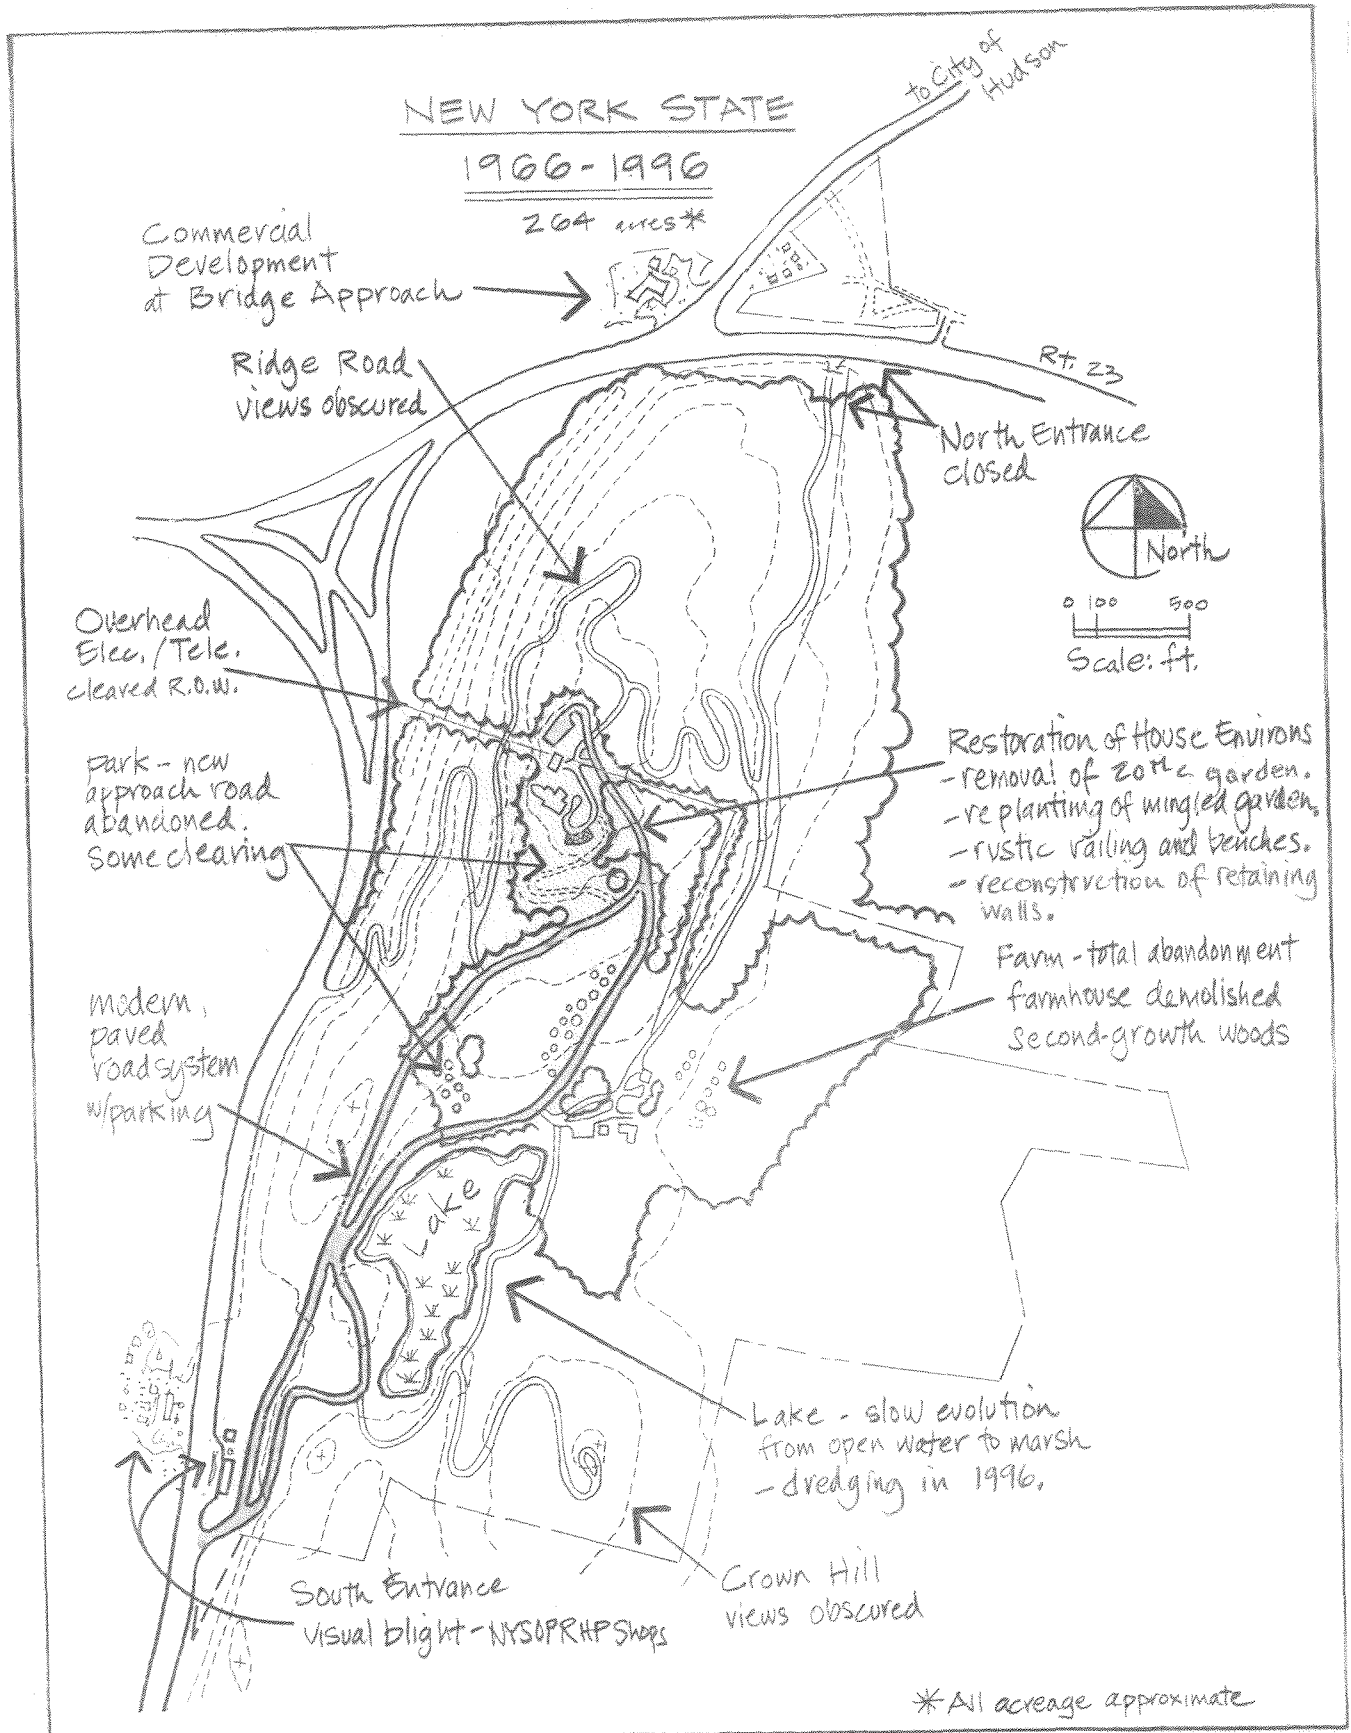 to City of
Hudson
NEW YORK STATE
1966-1996
264 acres*
Commercial
Development
at Bridge Approach
Ridge Road
views obscured
Rt. 23
North Entrance
closed
North
0 100 500
Scale: ft.
Overhead
Elec./Tele.
cleared R.O.W.
Park - new
approach road
abandoned.
Some clearing
Restoration of House Environs
- removal of 20th c garden.
- replanting of mingled garden.
- rustic railing and benches.
- reconstruction of retaining
walls.
Farm - total abandonment
farmhouse demolished
second-growth woods
Modern,
paved
road system
w/parking
Lake
Lake - slow evolution
from open water to marsh
- dredging in 1996.
Crown Hill
views obscured
South Entrance
visual blight - NYSOPRHP Shops
* All acreage approximate